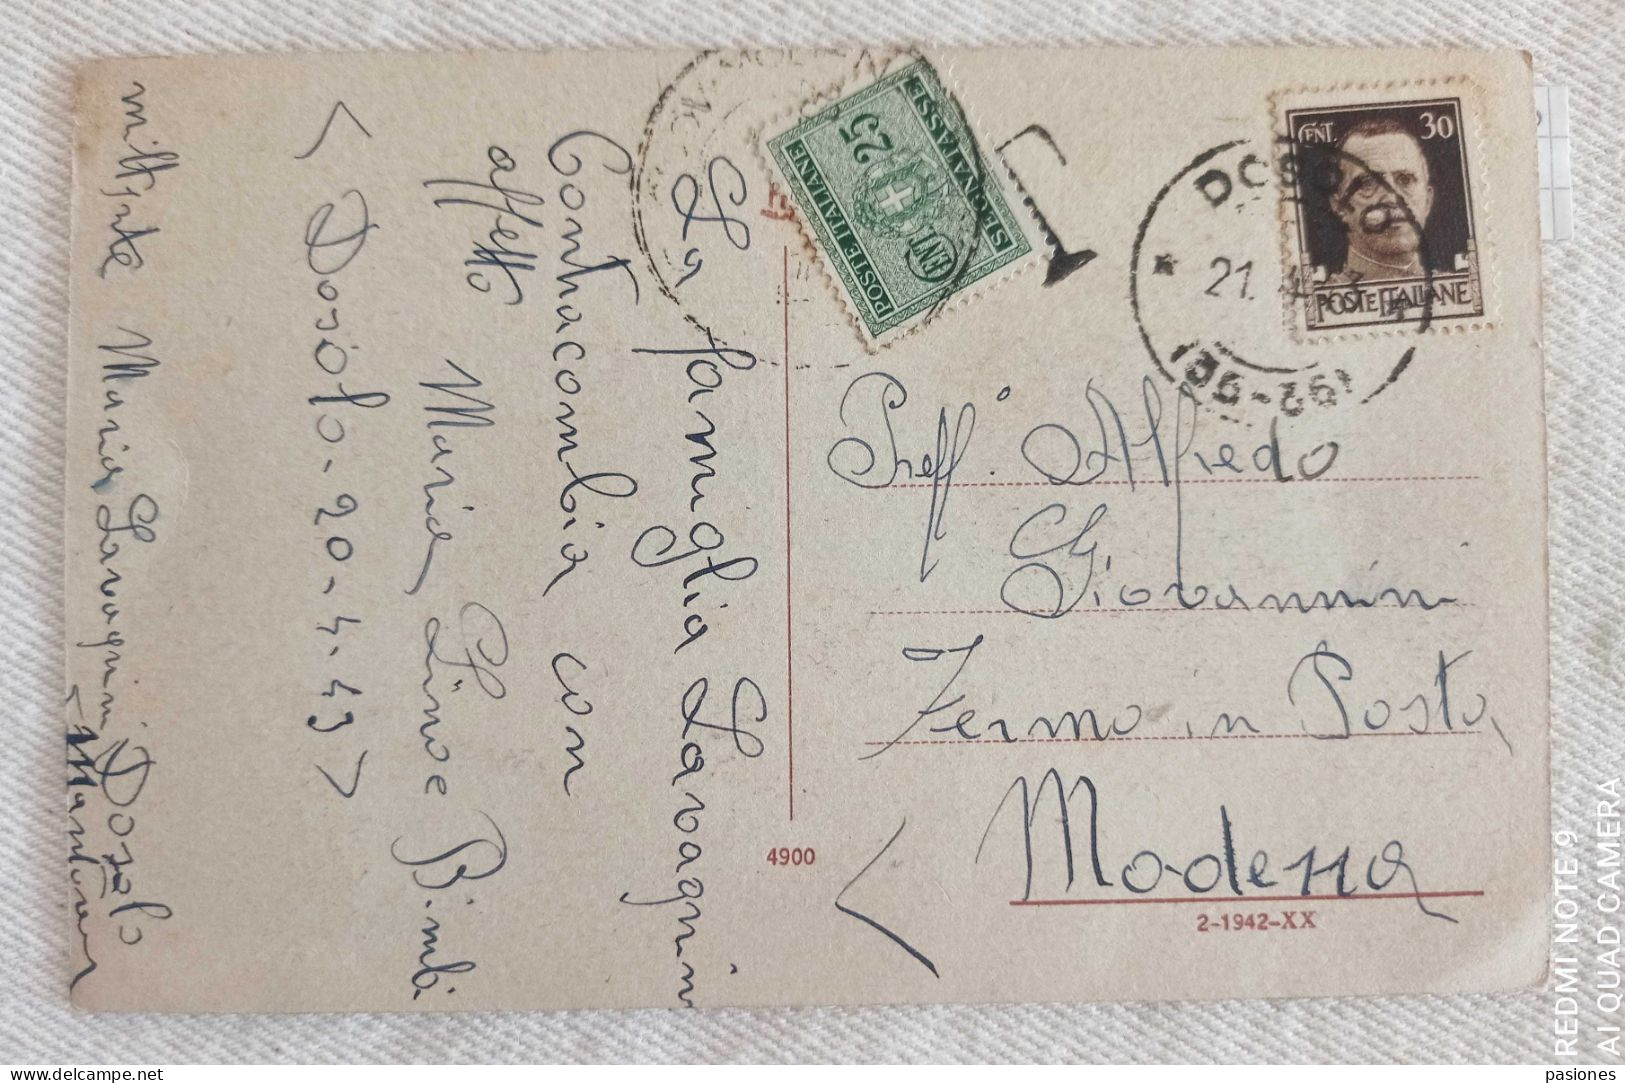 La famiglia Lavagnini
Contracambia con
affetto
Maria Bimbi
< Dosolo. 20.4.43 >
mittente Maria Lavagnini Dosolo
Mantova
CENT. 25
POSTE ITALIANE
SEGNATASSE
T
CENT. 30
POSTE ITALIANE
DOSOLO
21.
Alfredo
Giovannini
Fermo in Posta
Modena
4900
2-1942-XX
REDMI NOTE 9
AI QUAD CAMERA
delcampe.net
pasiones